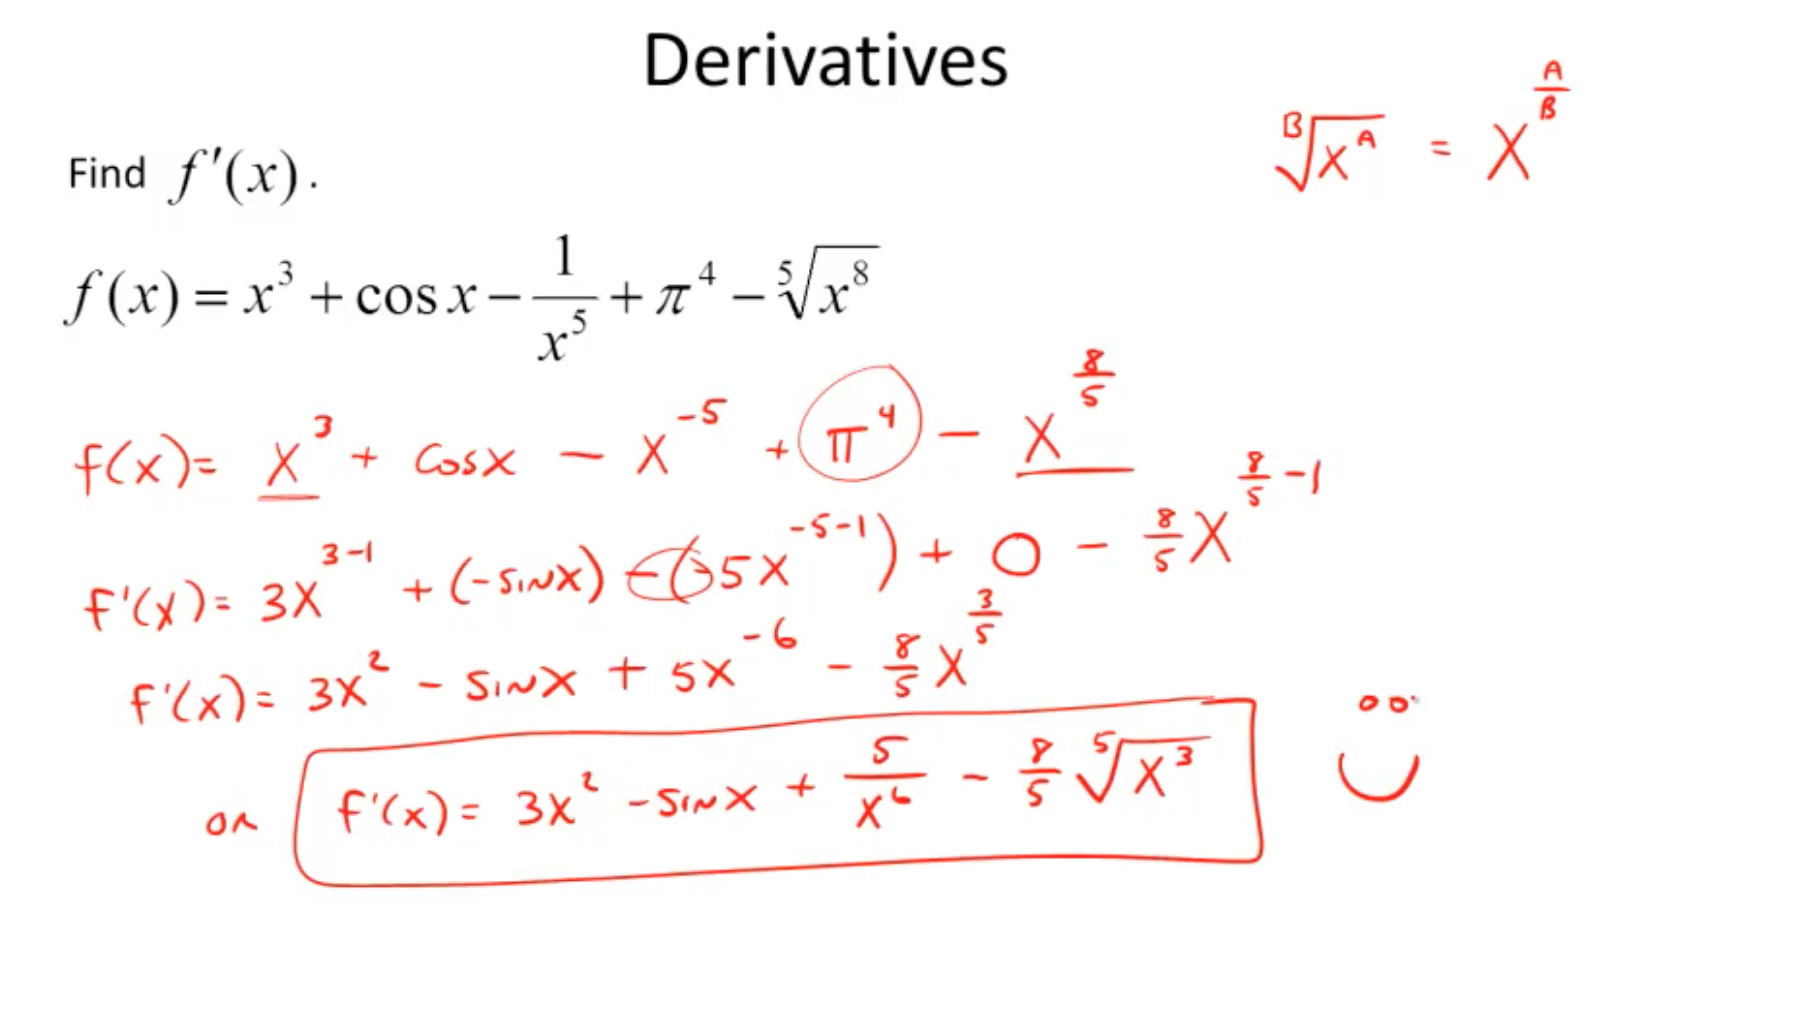 Derivatives
\sqrt[B]{X^A} = X^{\frac{A}{B}}
Find f'(x).
f(x) = x^3 + cos x - \frac{1}{x^5} + π^4 - \sqrt[5]{x^8}
f(x) = X^3 + cosx - X^{-5} + π^4 - X^{\frac{8}{5}}
f'(x) = 3X^{3-1} + (-sinx) - (-5X^{-5-1}) + 0 - \frac{8}{5}X^{\frac{8}{5}-1}
f'(x) = 3X^2 - sinx + 5X^{-6} - \frac{8}{5}X^{\frac{3}{5}}
or f'(x) = 3X^2 - sinx + \frac{5}{X^6} - \frac{8}{5}\sqrt[5]{X^3}